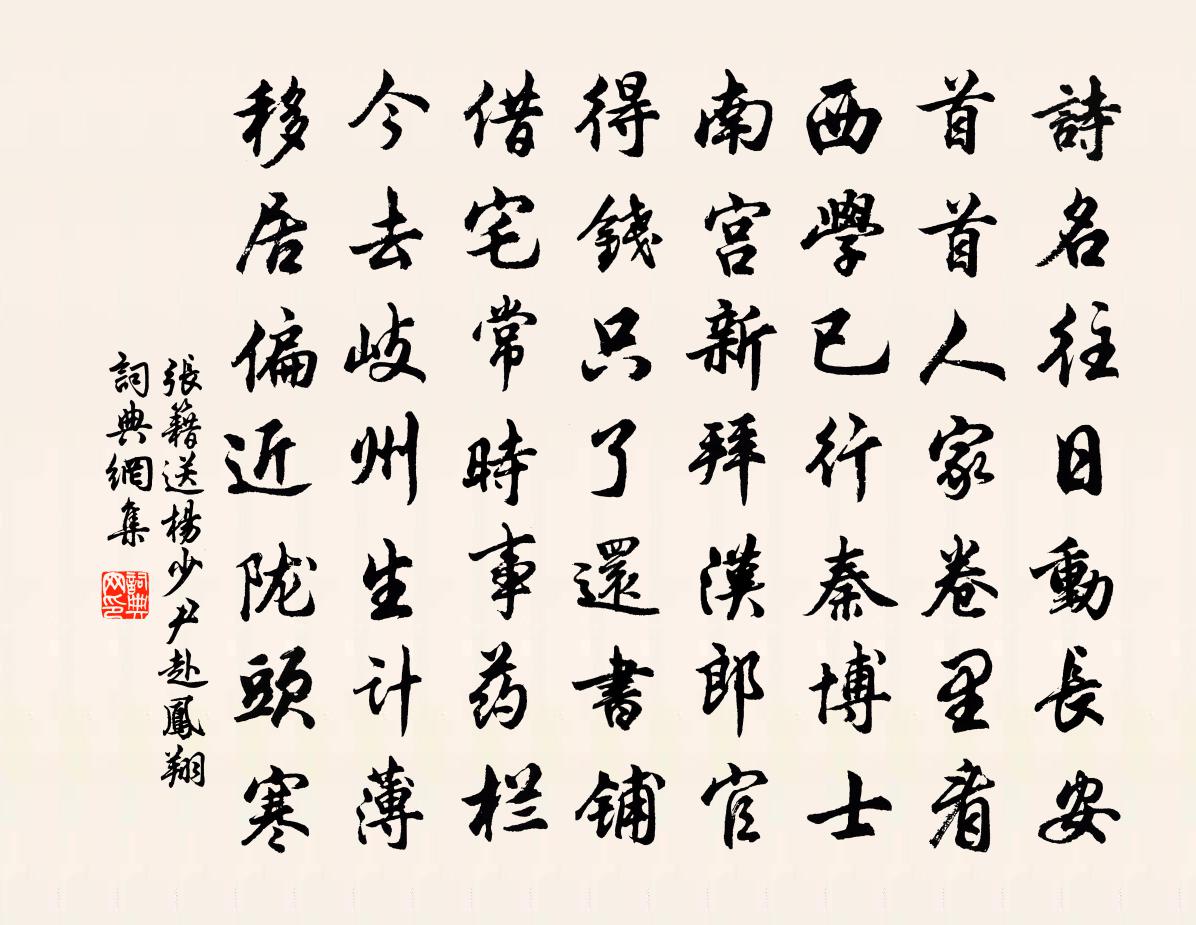 詩名往日動長安
首首人家卷里看
西學已行秦博士
南宮新拜漢郎官
得錢只了還書鋪
借宅常時事药栏
今去岐州生计薄
移居偏近陇頭寒
張籍送楊少尹赴鳳翔
詞典網集
詞典
网印